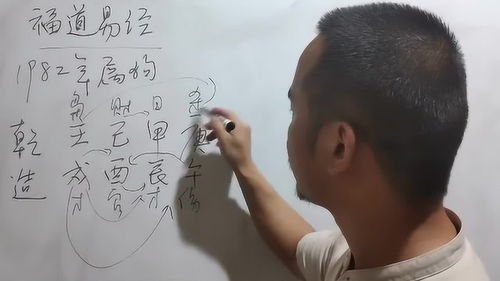 福道易经
1982年属狗
枭 财 日 杀
乾 壬 己 甲 庚
造 戌 酉 辰 午
才 官 才 伤